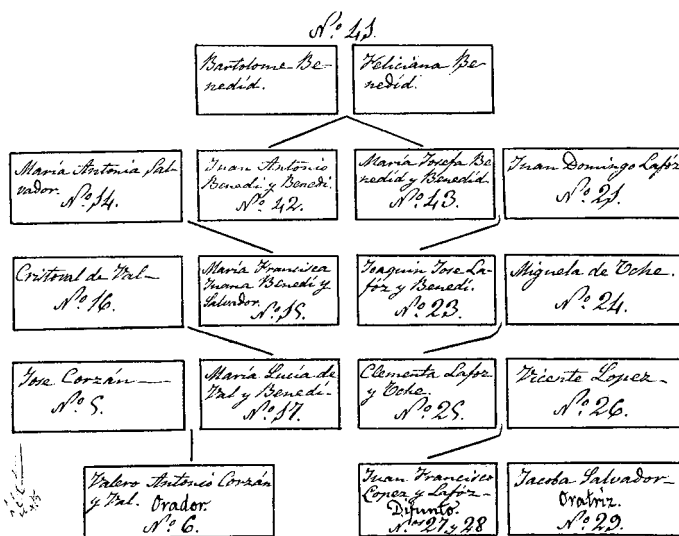 N.º 41.
Bartolome Be-
nedid.
Feliciana Be-
nedid.
María Antonia Sal-
vador.
N.º 14.
Juan Antonio
Benedi y Benedi.
N.º 42.
María Josefa Be-
nedid y Benedid.
N.º 43.
Juan Domingo Lafóz
N.º 21.
Cristoval de Val-
N.º 16.
María Francisca
Juana Benedí y
Salvador.
N.º 15.
Joaquin Jose La-
fóz y Benedí.
N.º 23.
Miguela de Oche.
N.º 24.
Jose Corzán-
N.º 5.
María Lucía de
Val y Benedí-
N.º 17.
Clementa Lafoz
y Oche.
N.º 25.
Vicente Lopez-
N.º 26.
Valero Antonio Corzán
y Val. Orador.
N.º 6.
Juan Francisco
Lopez y Lafóz-
Difunto.
N.os 27 y 28
Jacoba Salvador-
Oratriz.
N.º 29.